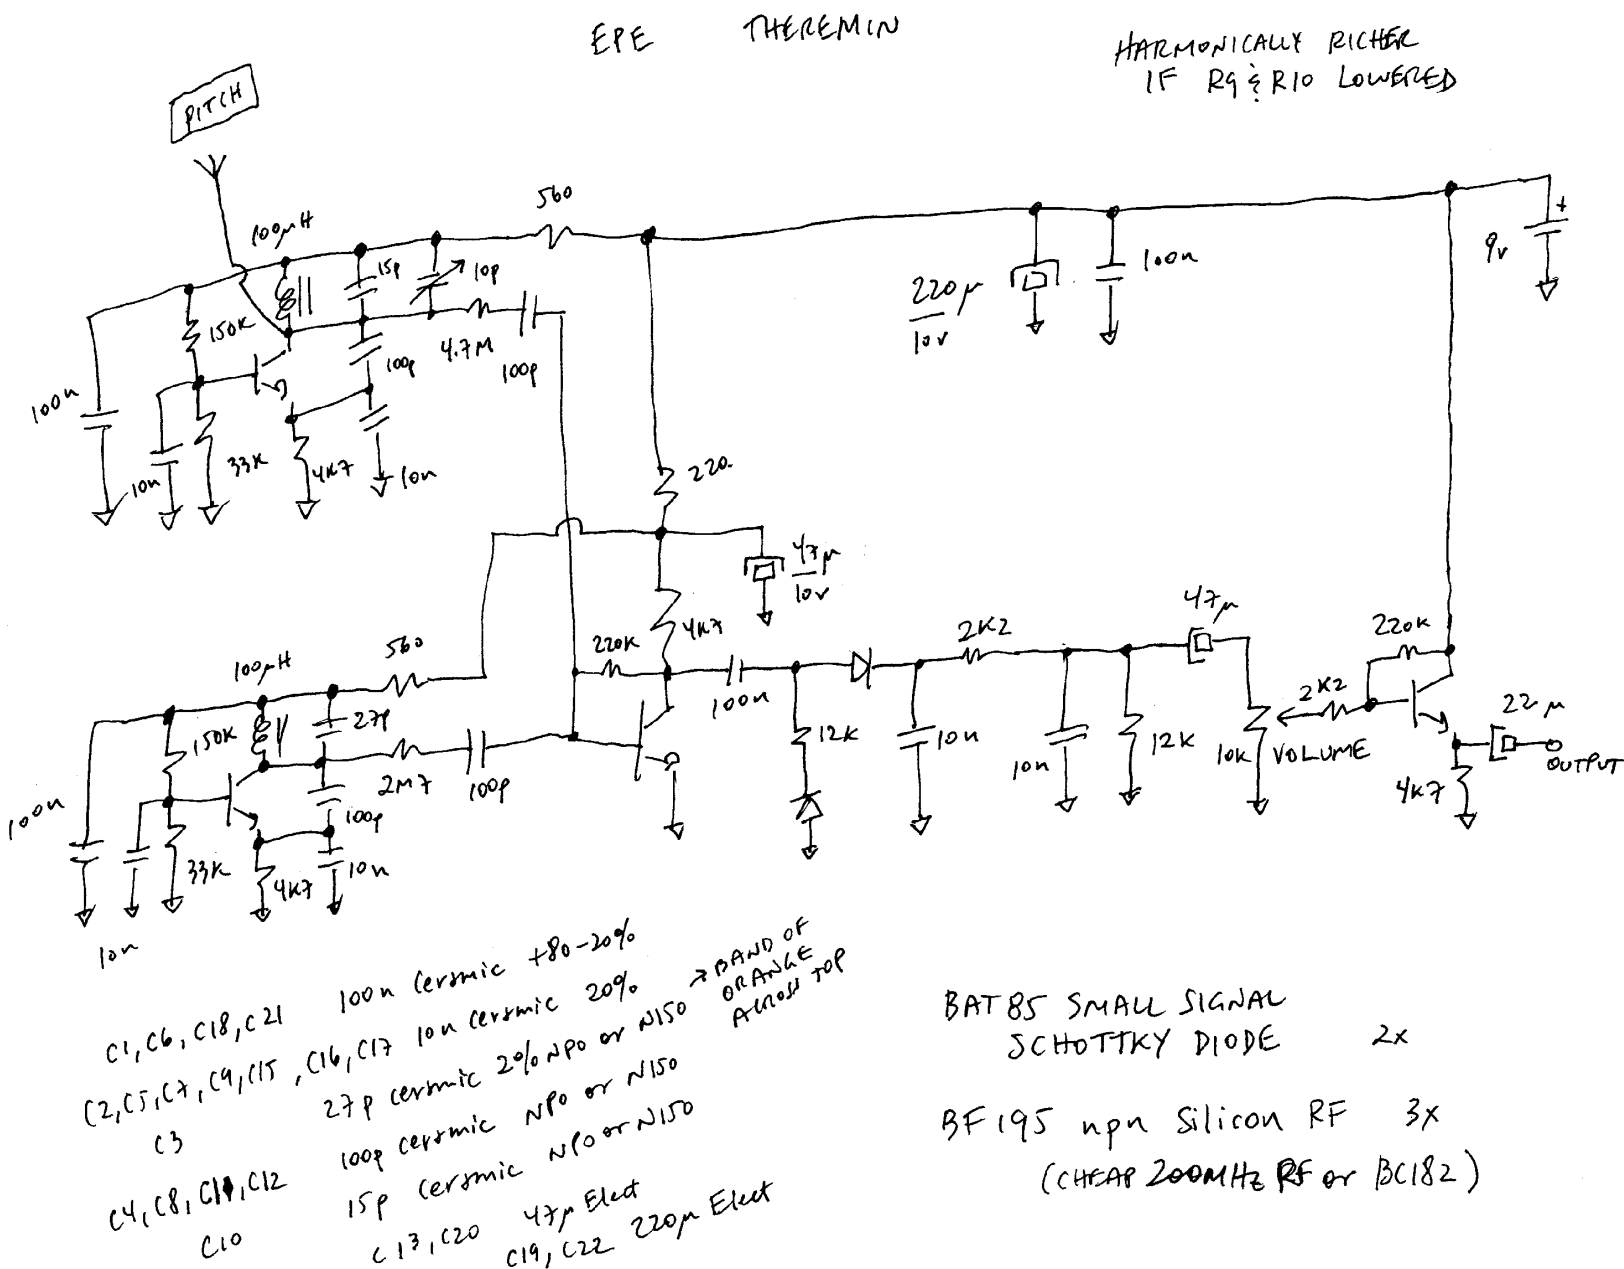 EPE THEREMIN
HARMONICALLY RICHER
IF R9 & R10 LOWERED
PITCH
560
100μH
15p
10p
150K
4.7M
100p
100p
100n
10n
33K
4K7
10n
220μ
10V
100n
+
9v
220
47μ
10v
4K7
220K
560
100μH
27p
150K
2M7
100p
100p
100n
10n
33K
4K7
10n
100n
12K
10n
2K2
10n
12K
47μ
10K
VOLUME
2K2
220K
22μ
OUTPUT
4K7
C1, C6, C18, C21 100n Ceramic +80-20%
C2, C5, C7, C9, C15, C16, C17 10n Ceramic 20%
C3 27p ceramic 2% NPO or N150 → BAND OF
ORANGE
ACROSS TOP
C4, C8, C11, C12 100p ceramic NPO or N150
C10 15p Ceramic NPO or N150
C13, C20 47μ Elect
C19, C22 220μ Elect
BAT85 SMALL SIGNAL
SCHOTTKY DIODE 2x
BF195 npn Silicon RF 3x
(CHEAP 200MHz RF or BC182)